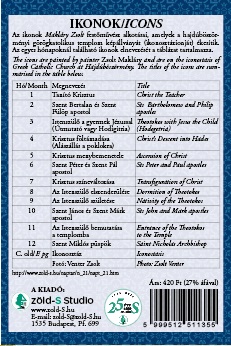 IKONOK/ICONS
Az ikonok Makláry Zsolt festőművész alkotásai, amelyek a hajdúböször-
ményi görögkatolikus templom képállványát (ikonosztázionját) ékesítik.
Az egyes hónapoknál található ikonok elnevezését a táblázat tartalmazza.
The icons are painted by painter Zsolt Makláry and are on the iconostasis of
Greek Catholic Church at Hajdúböszörmény. The titles of the icons are sum-
marised in the table below.
Hó/Month Megnevezés Title
1 Tanító Krisztus Christ the Teacher
2 Szent Bertalan és Szent Fülöp apostol Sts Bartholomeus and Philip apostles
3 Istenszülő a gyermek Jézussal (Útmutató vagy Hodigitria) Theotokos with Jesus the Child (Hodegetria)
4 Krisztus feltámadása (Alászállás a poklokra) Christ's Descent into Hades
5 Krisztus menybemenetele Ascension of Christ
6 Szent Péter és Szent Pál apostol St Peter and Paul apostles
7 Krisztus színeváltozása Transfiguration of Christ
8 Az Istenszülő elszenderülése Dormition of Theotokos
9 Az Istenszülő születése Nativity of the Theotokos
10 Szent János és Szent Márk apostol St John and Mark apostles
11 Az Istenszülő bemutatása a templomba Entrance of the Theotokos to the Temple
12 Szent Miklós püspök Saint Nicholas Archbishop
C. old/E pg Ikonosztáz Iconostasis
Fotó: Venter Zsolt Photo: Zsolt Venter
Ár: 420 Ft (27% áfával)
A KIADÓ:
zöld-S Studio
www.zold-S.hu
E-mail: zold-S@zold-S.hu
1535 Budapest, Pf. 699
25
5 999512 511355